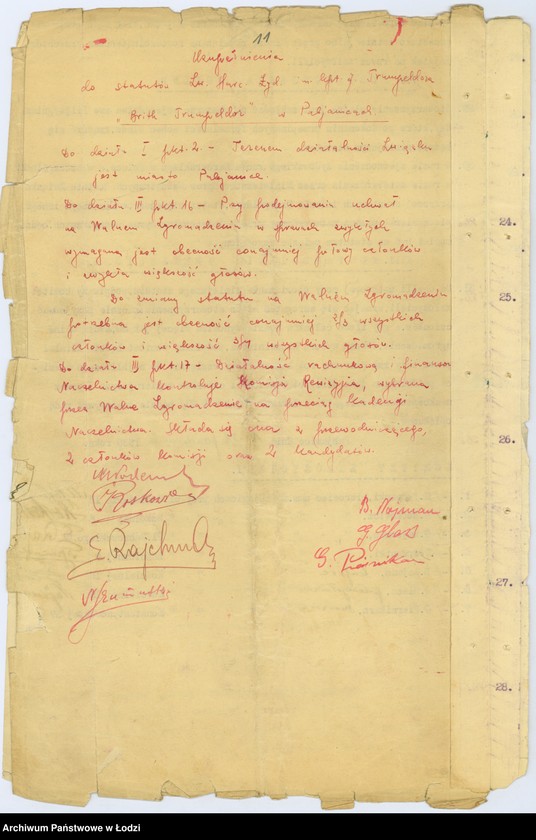 11
Uzupełnienia
do statutu Zw. Harc. Żyd. im. Trumpeldora
„Brith Trumpeldor" w Pabjanicach
Do działu I pkt. 2. – Terenem działalności Związku
jest miasto Pabjanice.
Do działu III pkt. 16 – Przy podejmowaniu uchwał
na Walnem Zgromadzeniu w sprawach zwykłych
wymagana jest obecność conajmniej połowy członków
i zwykła większość głosów.
Do zmiany statutu na Walnem Zgromadzeniu
potrzebna jest obecność conajmniej 2/3 wszystkich
członków i większość 3/4 wszystkich głosów.
Do działu III pkt. 17 – Działalność rachunkową i finansow
Naczelnictwa kontroluje Komisja Rewizyjna, wybrana
przez Walne Zgromadzenie na przeciąg kadencji
Naczelnictwa. Składa się ona z przewodniczącego,
2 członków komisji oraz 2 kandydatów.
B. Najman
E. Rajchman
24.
25.
26.
27.
28.
Archiwum Państwowe w Łodzi